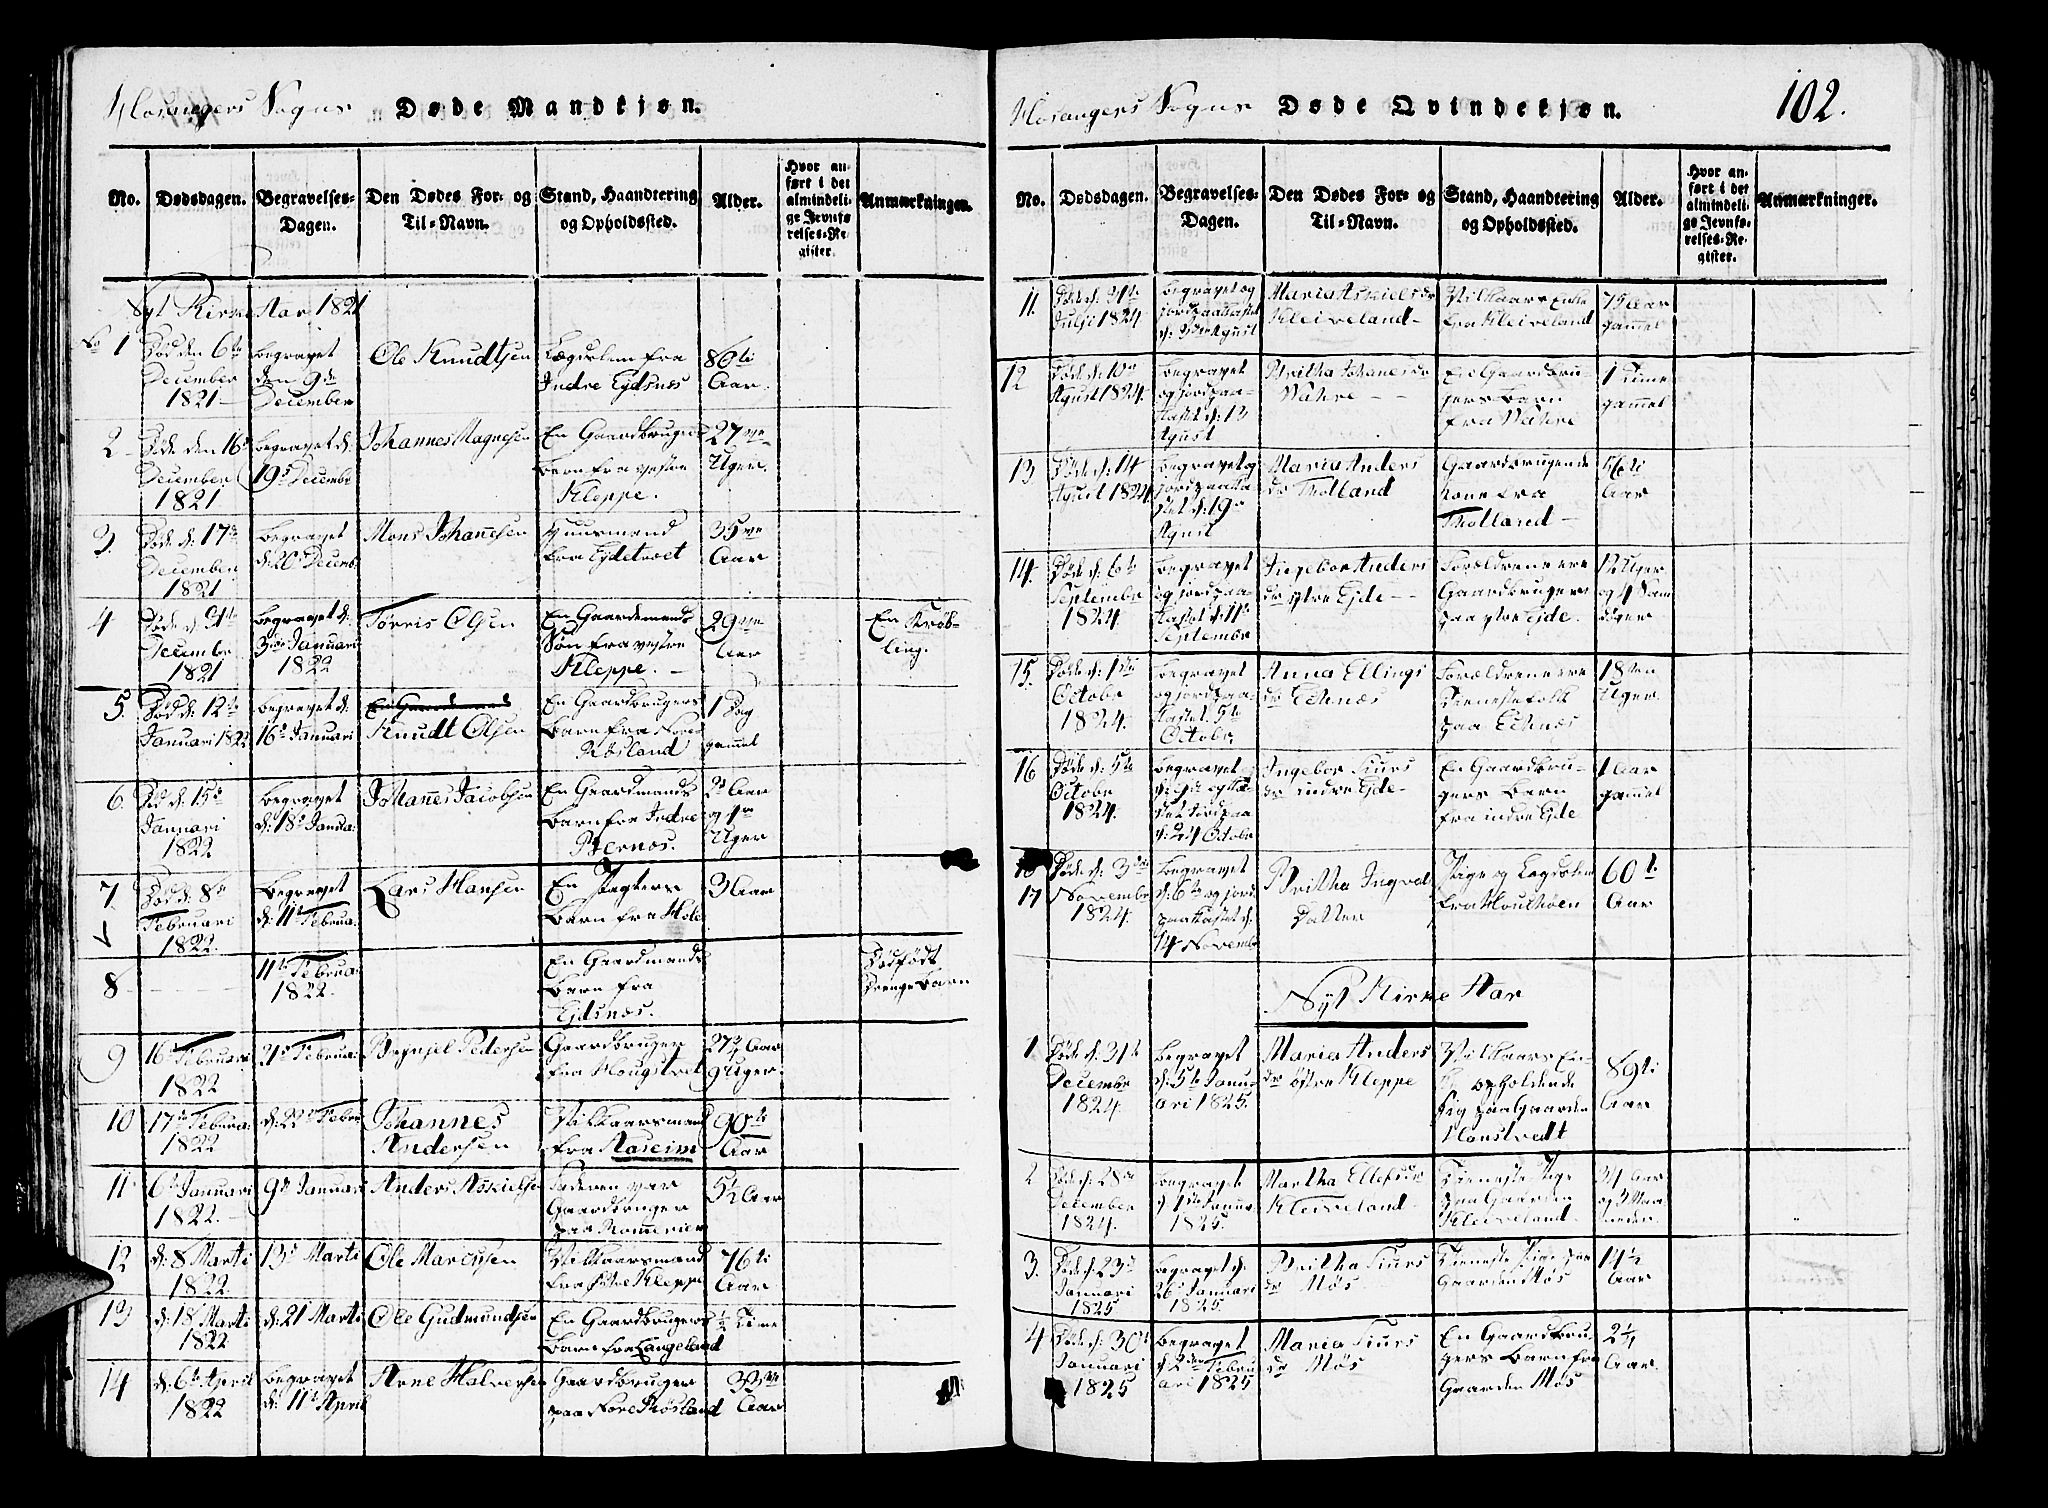 Hosangers Sogns Døde Mandkjøn.
No. Dødsdagen. Begravelses-Dagen. Den Dødes For- og Til-Navn. Stand, Haandtering og Opholdssted. Alder. Hvor anført i det almindelige Jevnførelses-Register. Anmærkninger.
Nyt Kirke Aar 1821
No 1 Død den 6te December 1821 begravet den 9de December Ole Knudtsen Lægdslem fra Indre Ejdsnes 80ti Aar.
2 Døde den 16de December 1821 begravet d: 19de Decembr Johannes Magnesen En Gaardbrugers barn fra vestre Kleppe. 27ve Uger.
3. Døde d: 17de December 1821 begravet d: 20de Decemb Mons Johannesen Huusmand fra Ejdetræet 35ve Aar
4 Døde d: 31te Decembr 1821 begravet d: 3die Januari 1822 Torris Olsen En Gaardmands Søn fra vestre Kleppe. 29ve Aar En Krøbling.
5. Død d: 12te Januari 1822 begravet d: 16de Januari Knudt Olsen En Gaardbrugers barn fra Nore Røsland 1 Dag gammel
6. Død d: 15de Januari 1822 begravet d: 18de Janua: Johannes Jacobsen En Gaardmands barn fra Indre Bernæs. 2 Aar og Uger
7. Død d: 8de Februari 1822. Begravet d: 11te Februa: Lars Hansen En Jægters barn fra Hole 3 Aar
8 11te Februa: 1822. En Gaardmands barn fra Ejdsnæs. Dødfødt Drengebarn
9 16de Februari 1822 21de Februa: Brynjel Pedersen Gaardbruger fra Hougstvet 27 Aar 9 Uger.
10 17de Februa: 1822 d: 22de Febru Johannes Andersen Vilkaarsmand fra Aaseim 90ti Aar
11 6te Januari 1822. 9de Januari Anders Askielsen Faderen var Gaardbruger paa Romerien 5½ Aar
12 d: 8 Marti 1822. 13de Marti Ole Marcusen Vilkaarsmand fra østre Kleppe 76ti Aar.
13 d: 18 Marti 1822 d: 21 Marti Ole Gudmundsen En Gaardbrugers barn fra Langeland ½ Time
14 d: 6te April 1822 Begravet d: 11te April Arne Halversen Gaardbruger paa Nore Røsland Aar
Hosangers Sogns Døde Qvindekjøn. 102.
No. Dødsdagen. Begravelses-Dagen. Den Dødes For- og Til-Navn. Stand, Haandtering og Opholdssted. Alder. Hvor anført i det almindelige Jevnførelses-Register. Anmærkninger.
11. Døde d: 31te Julji 1824 begravet og jordpaakastet d: Agust Maria Askiels dr Kleiveland Vilkaars Enke fra Kleiveland 75 Aar gammel
12 Døde d: 10de Agust 1824. begravet og jordpaakastet d: 13 Agust Britha Johannes dr Wahre En Gaardbrugers barn fra Wahre 1 Time gammel
13 Døde d: 14 Agust 1824 begravet og jordpaakastet d: 19de Agust Maria Anders dr Tholland Gaardbrugende Kone fra Tholland Aar
14. Døde d: 6te Septembr 1824. begravet og jordpaakastet d: 11te Septembr Ingebor Anders dr ytre Ejde Forældrene ere Gaardbrugere paa ytre Ejde. 12 Uger og 4 Samdøger
15. Døde d: 1ste Octobr 1824. begravet og jordpaakastet 5te Octobr Anna Ellings dr Echnæs Forældrene ere Tienestefolk paa Echnæs 18ten Uger
16 Døde d: 5te Octobr 1824. begravet jordpaa d: 24 Octobr Ingebor Siurs dr indre Ejde En Gaardbrugers Barn fra indre Ejde 1 Aar gammel
17 Døde d: 3die Novembr 1824. begravet d: 6te og jordpaakastet d: 14 Novembr Britha Ingvels Datter Pige og Legdslem fra Mouthøen 60ti Aar
Nyt Kirke Aar
1. Døde d: 31te Decembr 1824 begravet d: 5te Januari 1825. Maria Anders dr østre Kleppe Vilkaars Enke opholdende sig paa Gaarden Honstvedt 89ti Aar
2 Døde d: 28de December 1824. begravet d: 1ste Januar 1825. Martha Ellefs dr Kleiveland Tieneste Pige paa Gaarden Kleiveland 31 Aar og 3 Maaneder.
3. Døde d: 23de Januari 1825 begravet d: 26de Januari 1825. Britha Siurs dr Møs Tieneste Pige paa Gaarden Møs 14½ Aar
4 Døde d: 30te Januari 1825 begravet d: 2den Februari 1825 Maria Siurs dr Møs En Gaardbrugers barn fra Gaarden Møs 2¼ Aar